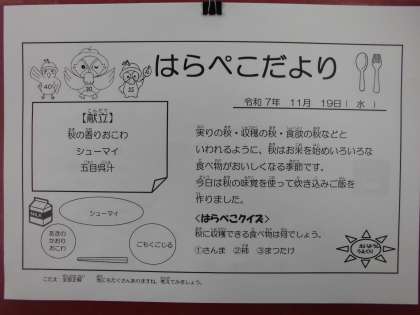 はらぺこだより
令和 7年 11月 19日( 水 )
【献立】
秋の香りおこわ
シューマイ
五目呉汁
実りの秋・収穫の秋・食欲の秋などと
いわれるように、秋はお米を始めいろいろな
食べ物がおいしくなる季節です。
今日は秋の味覚を使って炊き込みご飯を
作りました。
<はらぺこクイズ>
秋に収穫できる食べ物は何でしょう。
①さんま ②柿 ③まつたけ
シューマイ
あきの
かおり
おこわ
ごもくごじる
MILK
こたえ:全部正解 他にもたくさんありますね。考えてみましょう。